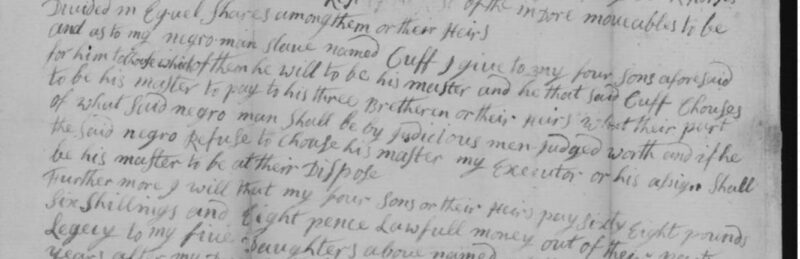 of the indore moveables to be
Divided in Equel Shares among them or their Heirs
and as to my negro man slave named Cuff I give to my four sons aforesaid
for him to Chouse which of them he will to be his master and he that said Cuff Chouses
to be his master to pay to his three Bretheren or their Heirs what their part
of what Said negro man Shall be by Judicious men Judged worth and if he
the said negro Refuse to Chouse his master my Executor or his assign Shall
be his master to be at their Dispose
Further more I will that my four Sons or their Heirs pay Sixty Eight pounds
Six Shillings and Eight pence Lawfull money out of their part
Legecy to my five Daughters above named
years after my